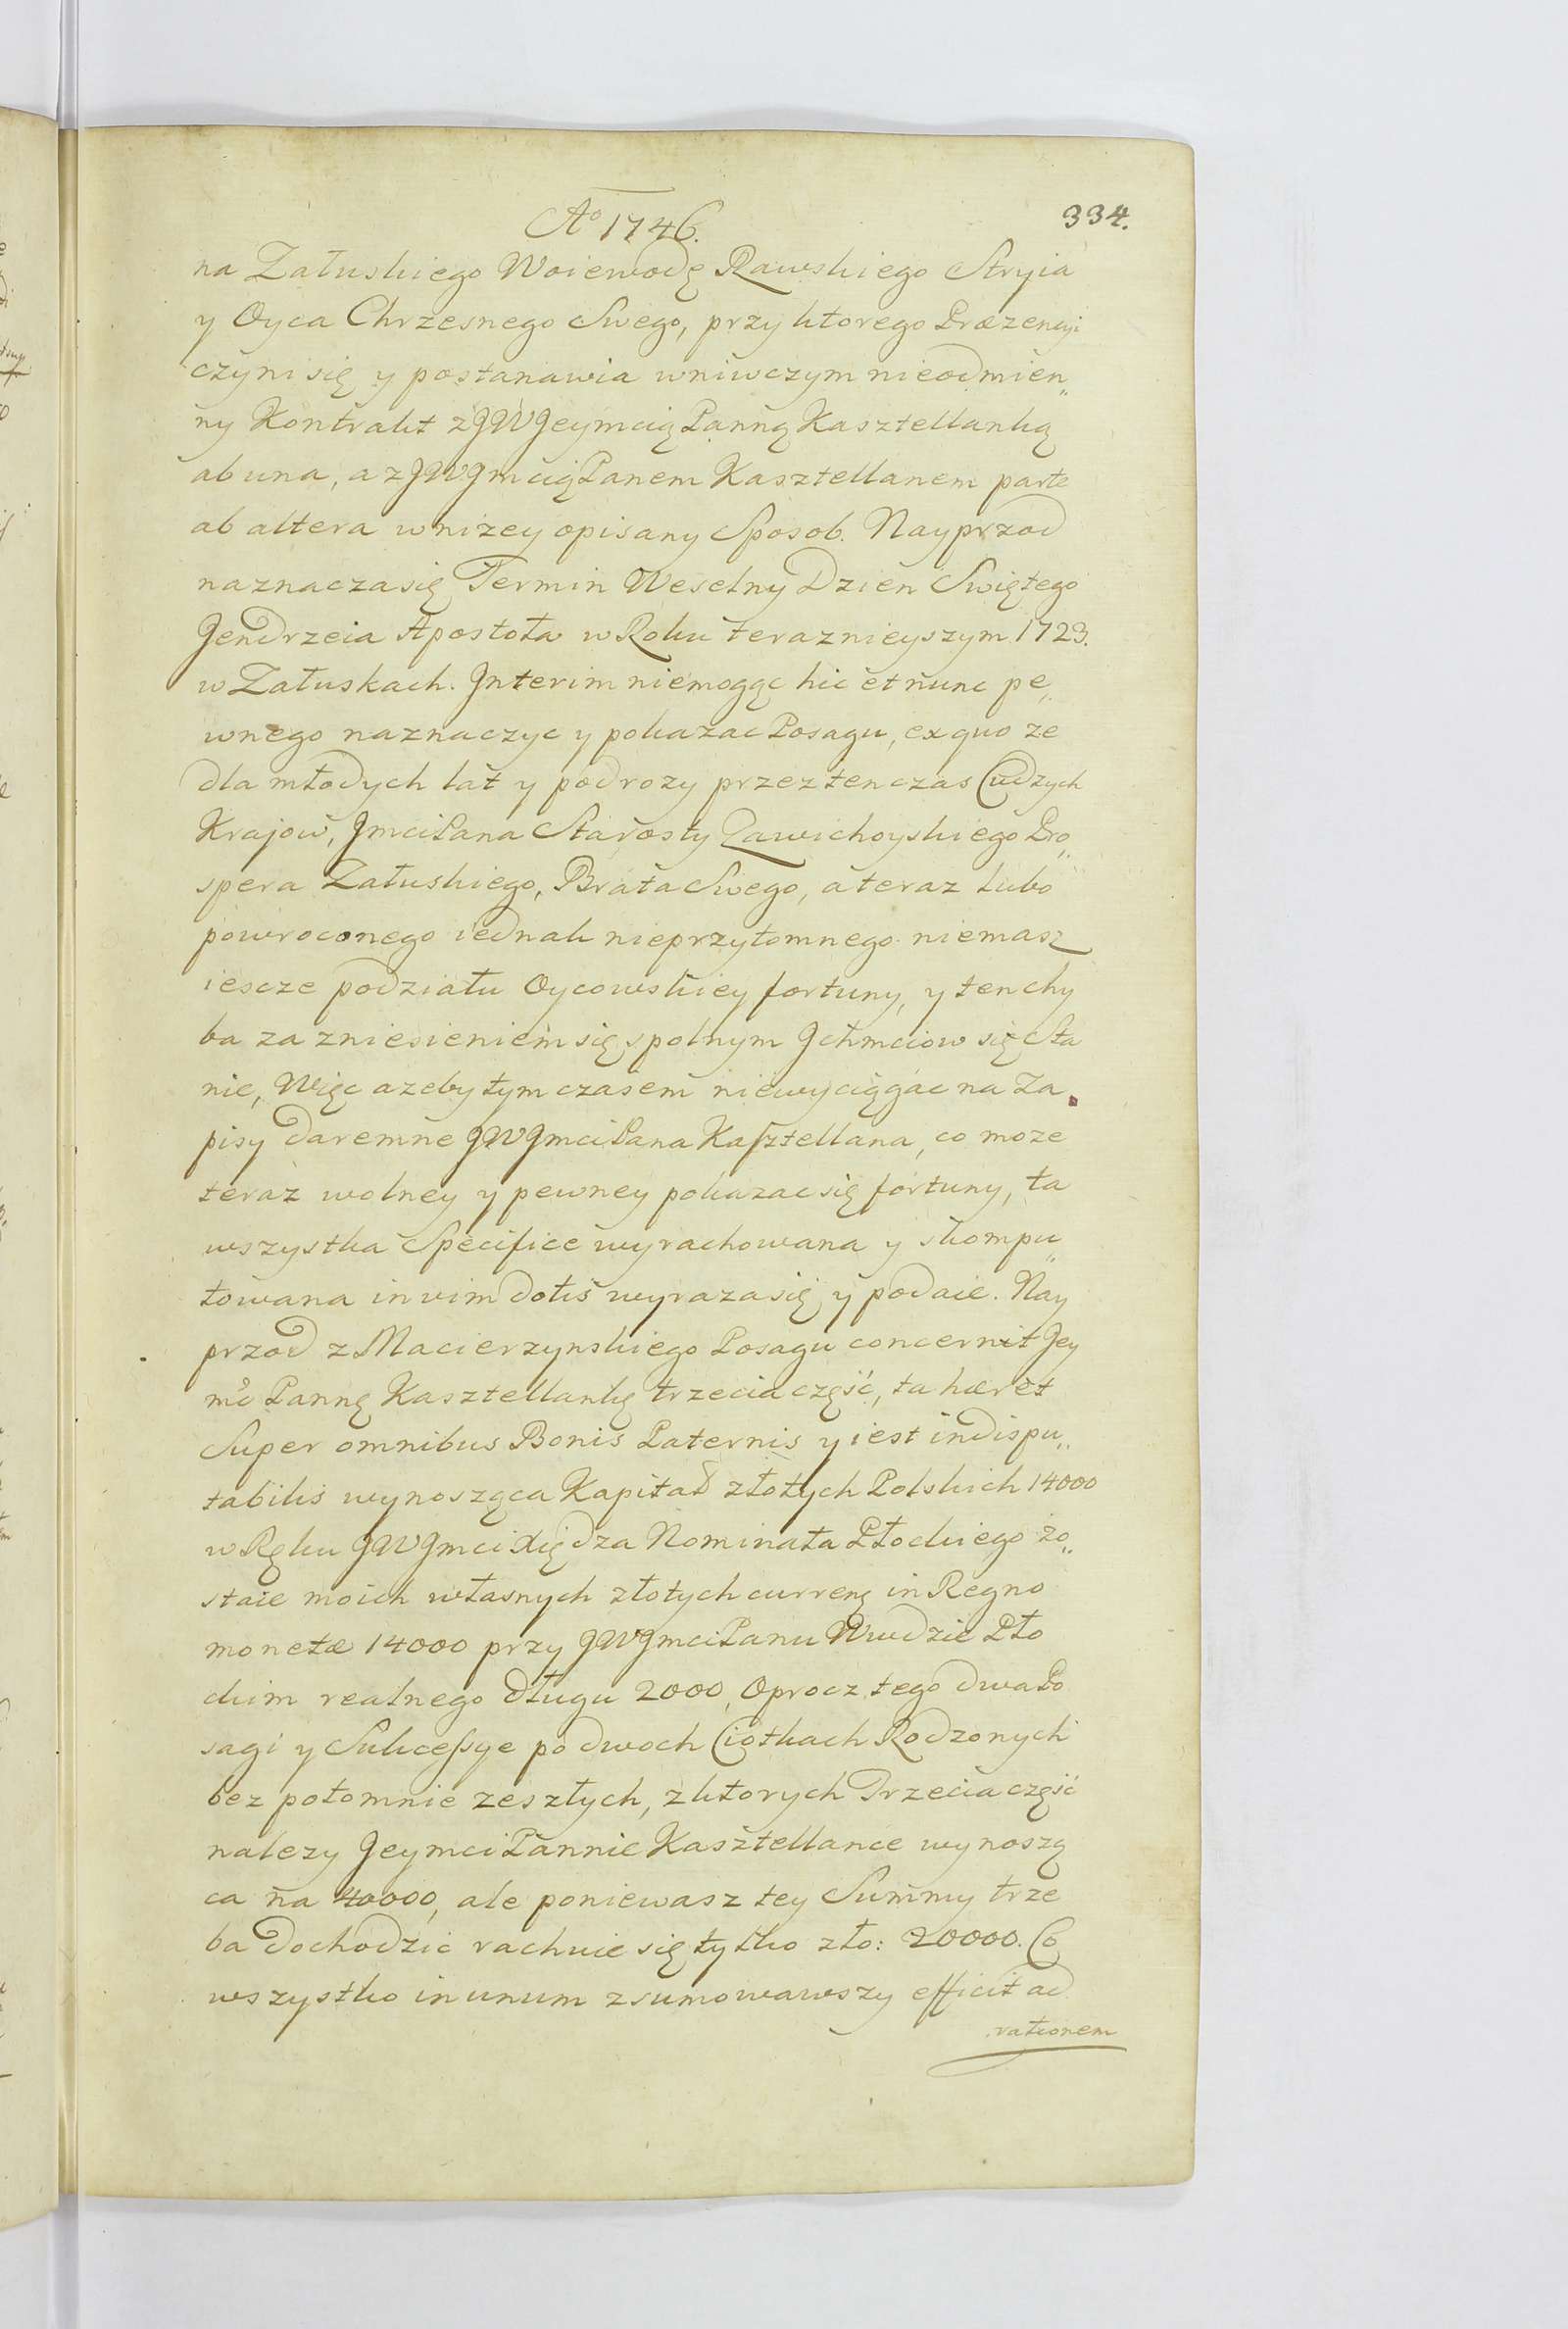 Ao 1746.
334.
na Załuskiego Woiewodę Rawskiego Stryia
y Oyca Chrzesnego Swego, przy ktorego Præzencyi
czyni się y postanawia wniwczym nieodmien„
ny Kontrakt z JW Jeymcią Panną Kasztellanką
ab una, a z JW Jmcią Panem Kasztellanem parte
ab altera wnizey opisany Sposob. Nayprzod
naznacza się Termin Weselny Dzien Swiętego
Jendrzeia Apostoła w Roku teraznieyszym 1723.
w Załuskach. Interim niemogąc hic et nunc pe„
wnego naznaczyc y pokazac Posagu, ex quo ze
dla młodych lat y podrozy przez ten czas Cudzych
Krajow, Jmci Pana Starosty Zawichoyskiego Pro„
spera Załuskiego, Brata Swego, a teraz lubo
powroconego iednak nieprzytomnego niemasz
iescze podziału Oycowskiey fortuny, y ten chy
ba za zniesieniem się spolnym Ichmciow się Sta
nie, Więc azeby tym czasem niewyciągac na Za
pisy daremne JW Jmci Pana Kasztellana, co moze
teraz wolney y pewney pokazac się fortuny, ta
wszystka Specifice wyrachowana y skompu„
towana in vim dotis wyraza się y podaie. Nay
przod z Macierzynskiego Posagu concernit Jey
mć Pannę Kasztellankę trzecia część, ta hæret
Super omnibus Bonis Paternis y iest indispu„
tabilis wynosząca Kapitał złotych Polskich 14000
w Ręku JW Jmci Xiędza Nominata Płockiego zo„
staie moich własnych złotych curren in Regno
monetæ 14000 przy JW Jmci Panu Wwdzie Pło
ckim realnego długu 2000, Oprocz tego dwa Po
sagi y Sukcessye po dwoch Ciotkach Rodzonych
bez potomnie zeszłych, z ktorych Trzecia część
nalezy Jeymci Pannie Kasztellance wynoszą
ca na 40000, ale poniewasz tey Summy trze
ba dochodzic rachuie się tylko zło: 20000. Co
wszystko in unum zsumowawszy efficit ad
rationem